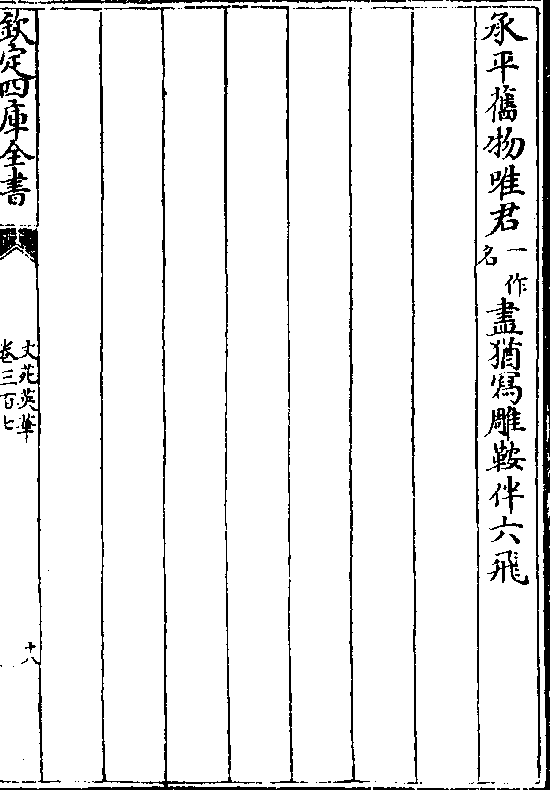 承平舊物唯君一作名盡猶寫雕鞍伴六飛
欽定四庫全書
文苑英華
卷三百七
十八